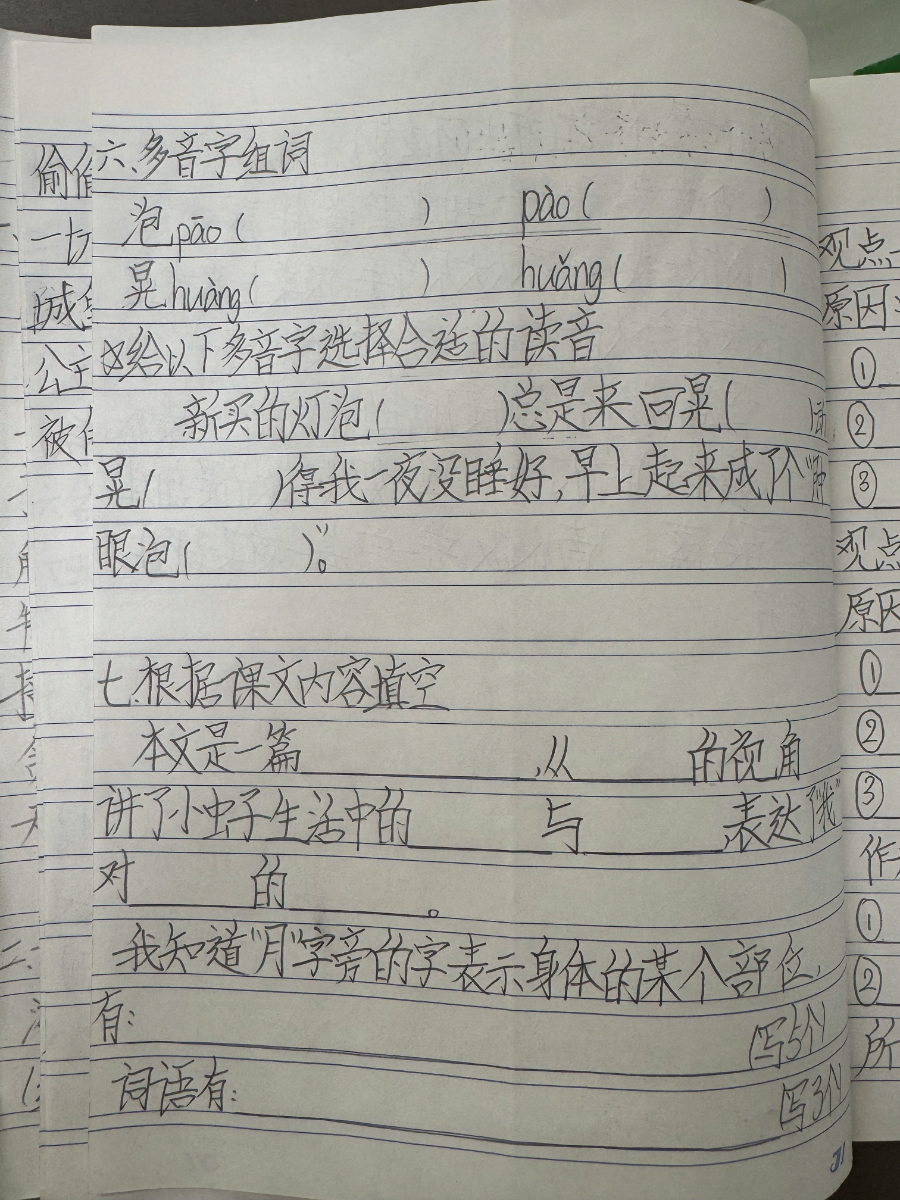 六、多音字组词
泡 pāo (                ) pào (                )
晃 huàng (                ) huǎng (                )
给以下多音字选择合适的读音
新买的灯泡(          )总是来回晃(        )动
晃(          )得我一夜没睡好,早上起来成了个“肿
眼泡(          )”。
七、根据课文内容填空
本文是一篇____________,从________的视角
讲了小虫子生活中的________与________,表达了“我”
对________的________。
我知道“月”字旁的字表示身体的某个部位,
有:________________(写5个)
词语有:________________(写3个)
31
偷
一切
城
公主
被
观点
原因
①
②
③
观点
原因
①
②
③
作
①
②
所